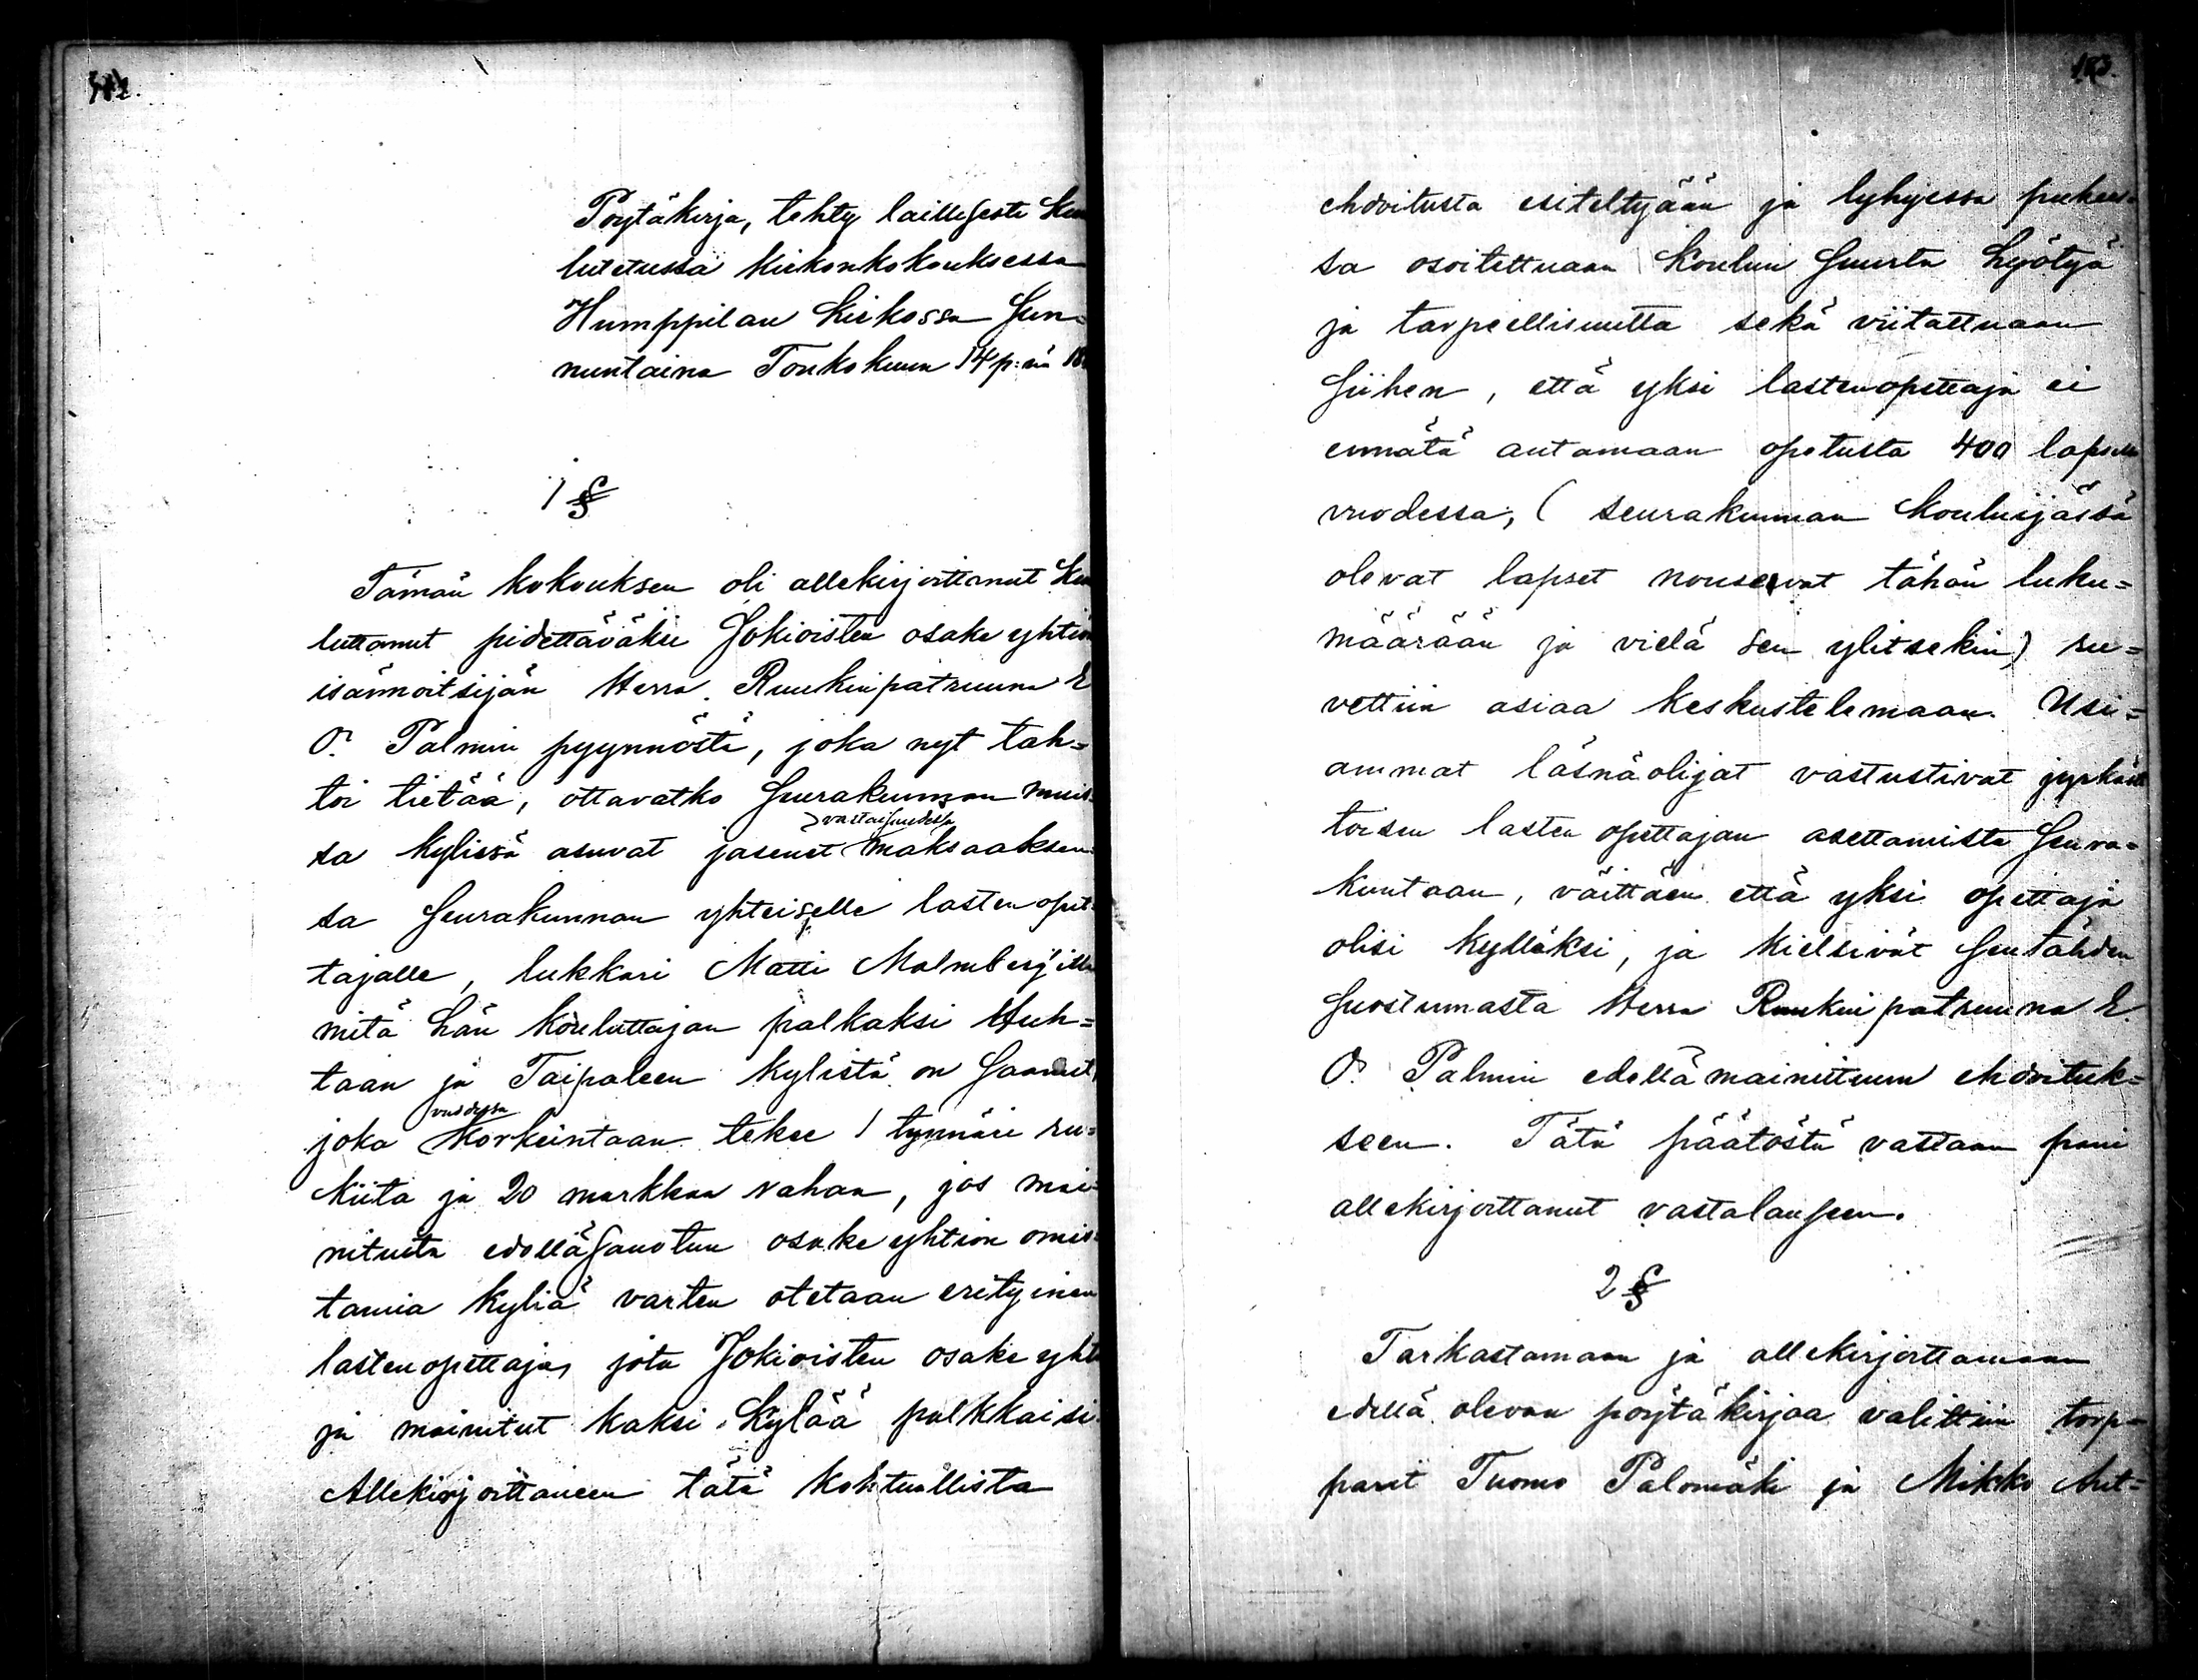 Pöytäkirja, tehty laillisesti kuu
lutetussa kirkonkokouksessa
Humppilan kirkossa sun=
nuntaina Toukokuun 14 p:nä 18
1 §
Tämän kokouksen oli allekirjoittanut kuu
luttanut pidettäväksi Jokioisten osake yhtiön
isännöitsijän Herra Ruukinpatruuna E
O. Palmin pyynnöstä, joka nyt tah=
toi tietää, ottavatko seurakunnan muis=
vastaisuudessa
sa kylissä asuvat jäsenet maksaaksen=
sa seurakunnan yhteiselle lasten opet=
tajalle, lukkari Matti Malmberg'ille
mitä hän kouluttajan palkaksi Huh=
taan ja Taipaleen kylistä on saanut,
vuodessa
joka korkeintaan tekee 1 tynnäri ru=
kiita ja 20 markkaa rahaa, jos mai=
nituita edelläsanotun osake yhtiön omis=
tamia kyliä varten otetaan erityinen
lastenopettaja, jota Jokioisten osake yht
ja mainitut kaksi kylää palkkaisi.
Allekirjoittaneen tätä kohtuullista
183.
ehdoitusta esiteltyään ja lyhyessä puhees=
sa osoitettuaan koulun suurta hyötyä
ja tarpeellisuutta sekä viitattuaan
siihen, että yksi lastenopettaja ei
ennätä antamaan opetusta 400 lapselle
vuodessa, (seurakunnan kouluijässä
olevat lapset nousevat tähän luku=
määrään ja vielä sen ylitsekin) ru=
vettiin asiaa keskustelemaan. Usi=
ammat läsnäolijat vastustivat jyrkästi
toisen lasten opettajan asettamista seura=
kuntaan, väittäen että yksi opettaja
olisi kylläksi, ja kielsivät sentähden
suostumasta Herra Ruukin patruuna E.
O. Palmin edellämainittuun ehdoituk=
seen. Tätä päätöstä vastaan pani
allekirjoittanut vastalauseen.
2 §
Tarkastamaan ja allekirjoittamaan
edellä olevan pöytäkirjaa valittiin torp=
parit Tuomo Palomäki ja Mikko Ant=